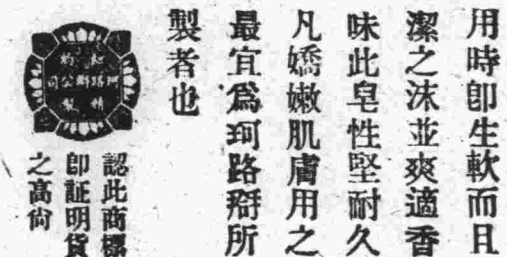 用時卽生軟而且
潔之沫並爽適香
味此皂性堅耐久
凡嬌嫩肌膚用之
最宜爲珂路搿所
製者也
認此商標
卽証明貨
之高尙